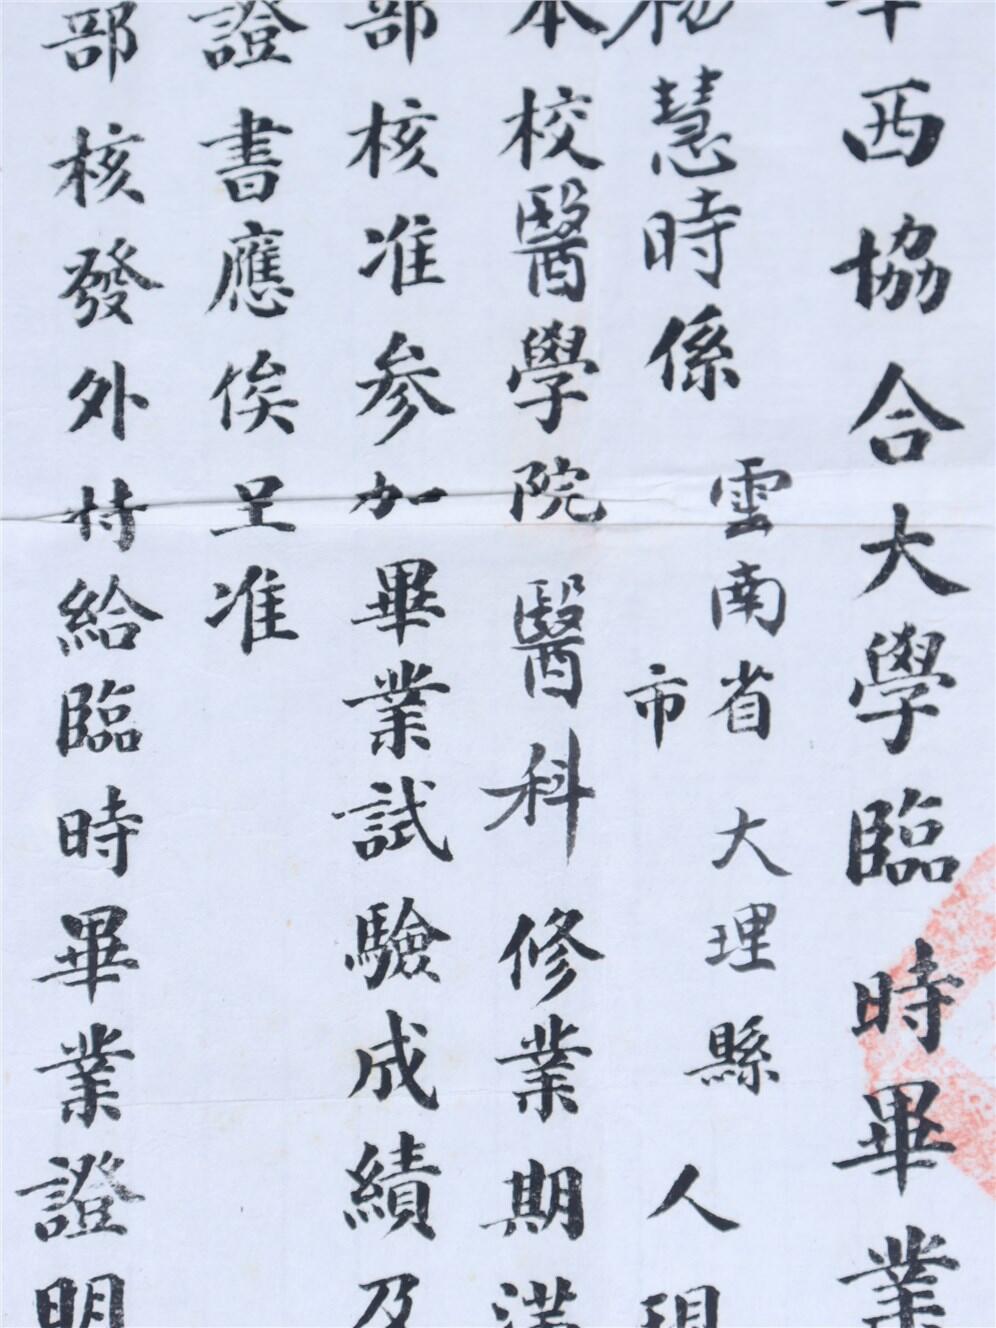 西協合大學臨時畢業
慧時係雲南省大理縣市人現
本校醫學院醫科修業期滿
部核准参加畢業試驗成績及
證書應俟呈准
部核發外特給臨時畢業證明